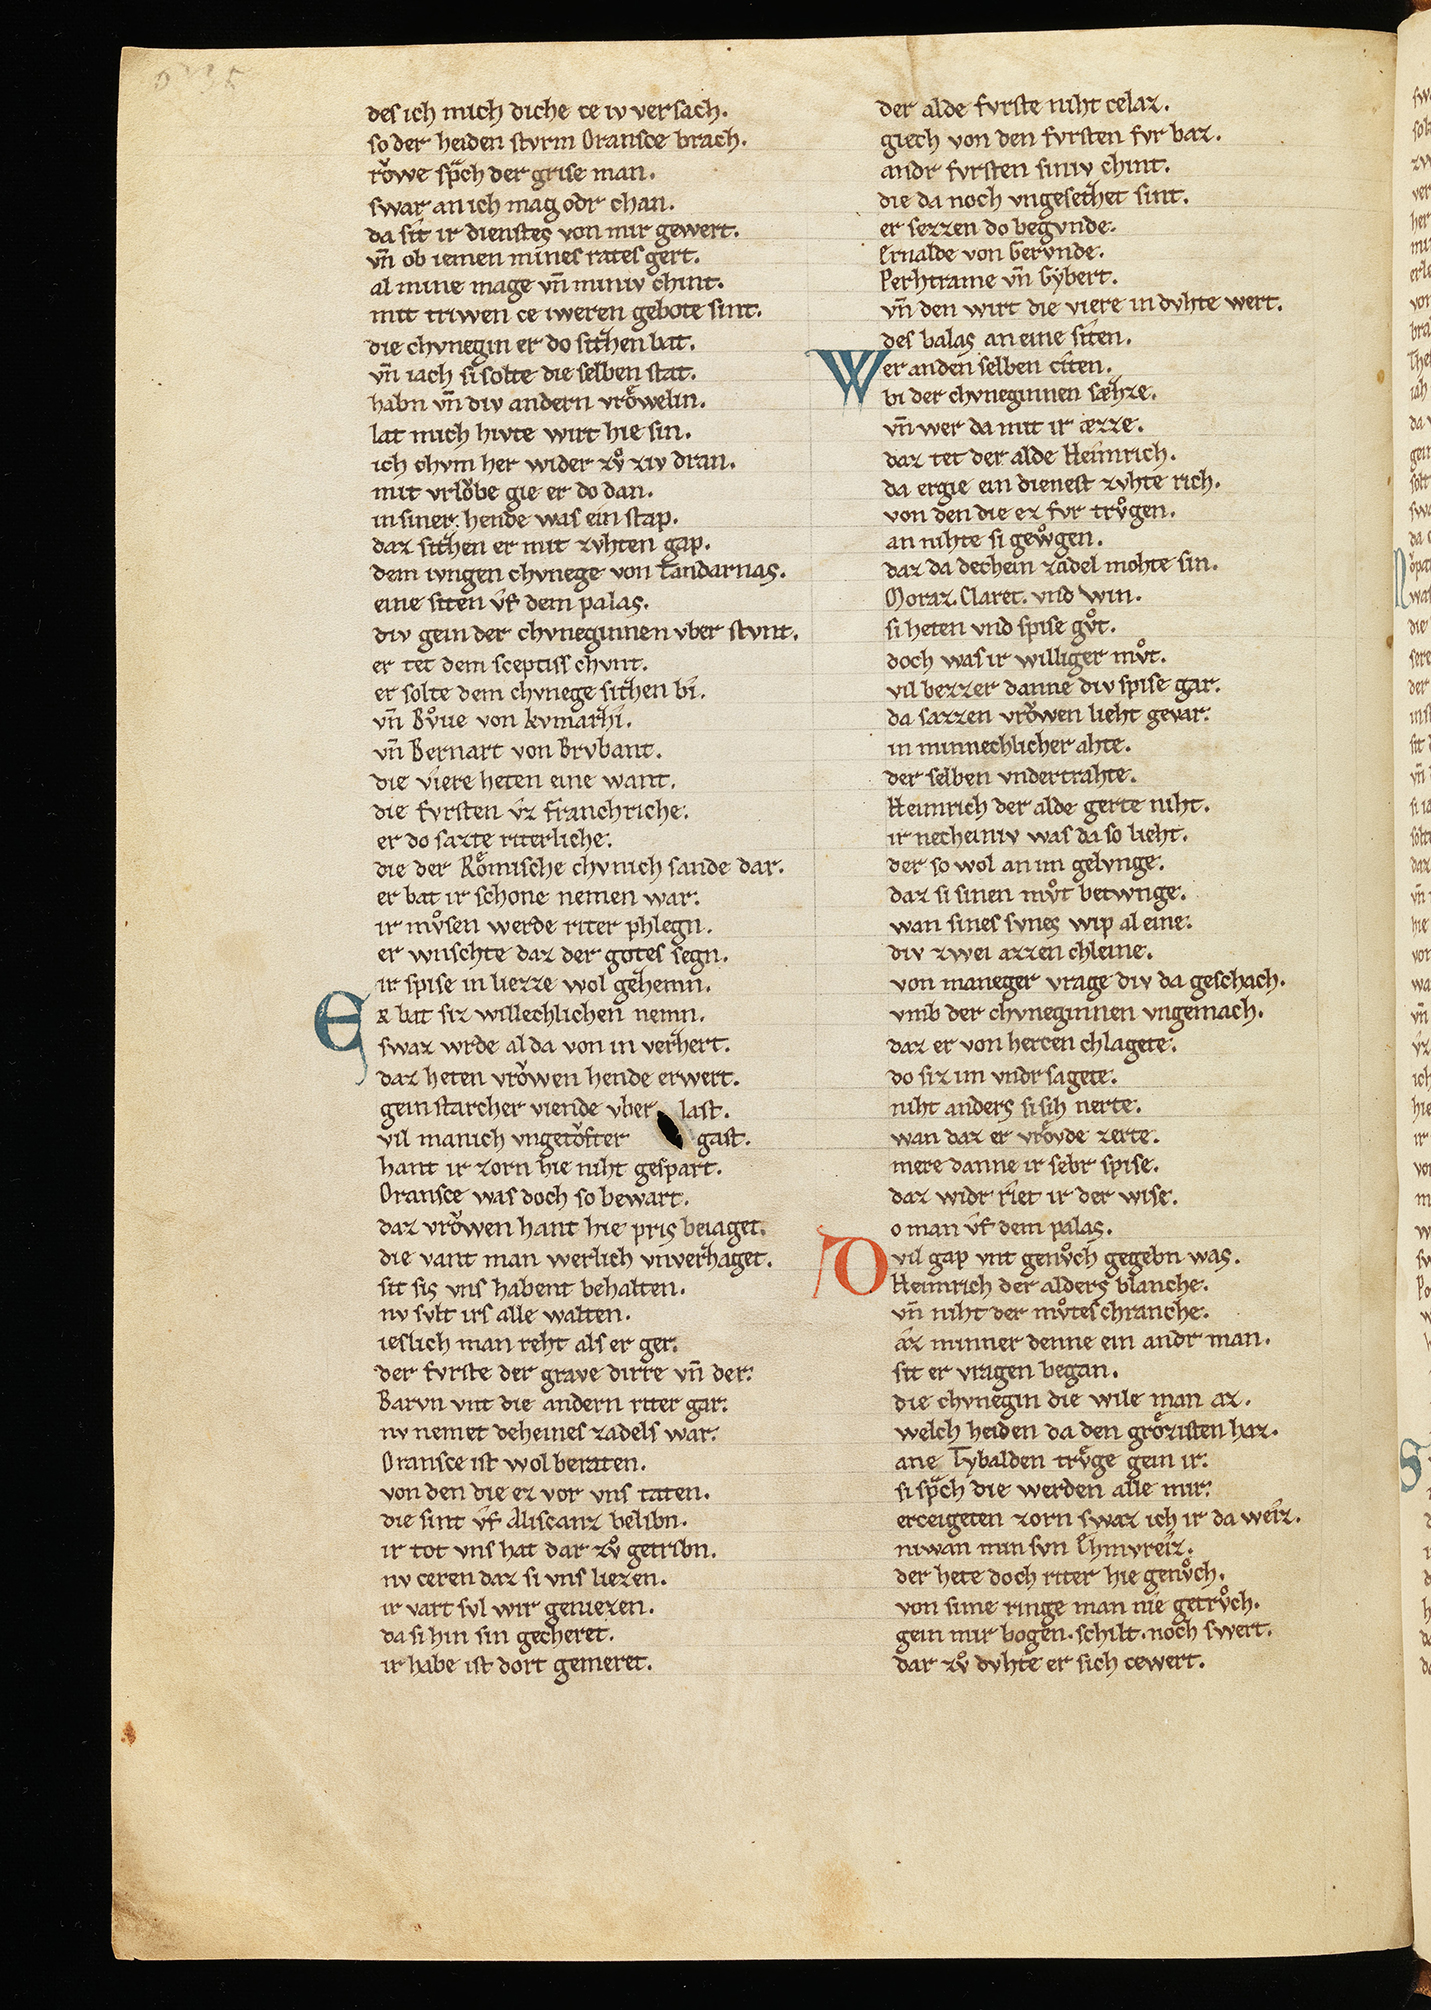 des ich mich diche ce iv versach.
so der heiden stvrm Oransce brach.
vrowe sp̄ch der grise man.
swar an ich mag odr chan.
da sit ir dienstes von mir gewert.
vn̄ ob iemen mines rates gert.
al mine mage vn̄ miniv chint.
mit triwen ce iweren gebote sint.
die chvnegin er do sitzhen bat.
vn̄ iach si solte die selben stat.
habn vn̄ div andern vrŏwelin.
lat mich hivte wirt hie sin.
ich chvm her wider zvͦ ziv dran.
mit vrlŏbe gie er do dan.
in siner hende was ein stap.
daz sitzhen er mit zvhten gap.
dem ivngen chvnege von Tandarnas.
eine siten v̂f dem palas.
div gein der chvneginnen vber stvnt.
er tet dem sceptiss chvnt.
er solte dem chvnege sitzhen bi.
vn̄ Bvͦue von kvmarhi.
vn̄ Bernart von Brvbant.
die viere heten eine want.
die fvrsten v̂z franchriche.
er do sazte riterliche.
die der Rŏmische chvnich sande dar.
er bat ir schone nemen war.
ir mvͦsen werde riter phlegn.
er wuschte daz der gotes segn.
ir spise in liezze wol gehemn.
Er bat siz willechlichen nemn.
swaz wrde al da von in verhert.
daz heten vrŏwen hende erwert.
gein starcher viende vber last.
vil manich vngetŏfter gast.
hant ir zorn hie niht gespart.
Oransce was doch so bewart.
daz vrŏwen hant hie pris beiaget.
die vant man werlich vnverhaget.
sit sis vns habent behalten.
nv svlt irs alle walten.
ieslich man reht als er ger.
der fvrste der grave dirre vn̄ der.
Barvn vnt die andern riter gar.
nv nemet deheines zadels war.
Oransce ist wol beraten.
von den die ez vor vns taten.
die sint v̂f Aliscanz belibn.
ir tot vns hat dar zvͦ getribn.
nv ceren daz si vns liezen.
ir vart svl wir geniezen.
da si hin sin gecheret.
ir habe ist dort gemeret.
der alde fvrste niht celaz.
giech von den fvrsten fvr baz.
andr fvrsten siniv chint.
die da noch vngesetzhet sint.
er sezzen do begvnde.
Ernalde von Gervnde.
Perhtrame vn̄ Gybert.
vn̄ den wirt die viere in dvhte wert.
des balas an eine siten.
Wer an den selben citen.
bi der chvneginnen sæhze.
vn̄ wer da mit ir æzze.
daz tet der alde Heimrich.
da ergie ein dienest zvhte rich.
von den die ez fvr trvͦgen.
an nihte si gewͦgen.
daz da dechein zadel mohte sin.
Moraz. Claret. vnd win.
si heten vnd spise gvͦt.
doch was ir williger mvͦt.
vil bezzer danne div spise gar.
da sazzen vrŏwen lieht gevar.
in minnechlicher ahte.
der selben vndertrahte.
Heimrich der alde gerte niht.
ir necheiniv was da so lieht.
der so wol an im gelvnge.
daz si sinen mvͦt betwnge.
wan sines svnes wip al eine.
div zwei azzen chleine.
von maneger vrage div da geschach.
vmb der chvneginnen vngemach.
daz er von hercen chlagete.
do siz im vndr sagete.
niht anders si sih nerte.
wan daz er vrŏvde zerte.
mere danne ir sebr spise.
daz widr riet ir der wise.
Do man v̂f dem palas.
vil gap vnt genvͦch gegebn was.
Heimrich der alders blanche.
vn̄ niht der mvͦtes chranche.
âz minner denne ein andr man.
sit er vragen began.
die chvnegin die wile man az.
welch heiden da den grŏzisten haz.
ane Tybalden trvͤge gein ir.
si sp̄ch die werden alle mir.
erceigeten zorn swaz ich ir da weiz.
niwan min svn Ehmvreiz.
der hete doch riter hie genvͦch.
von sime ringe man nie getrvͦch.
gein mir bogen. schilt. noch swert.
dar zvͦ dvhte er sich cewert.